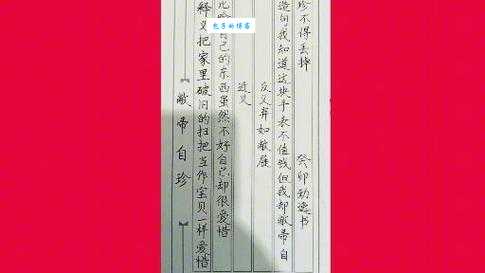 『敝帚自珍』
释义把家里破旧的扫把当作宝贝一样爱惜
比喻自己的东西虽然不好自己却很爱惜
近义
反义弃如敝屣
造句我知道这块手表不值钱但我却敝帚自
珍不得丢掉
癸卯
书